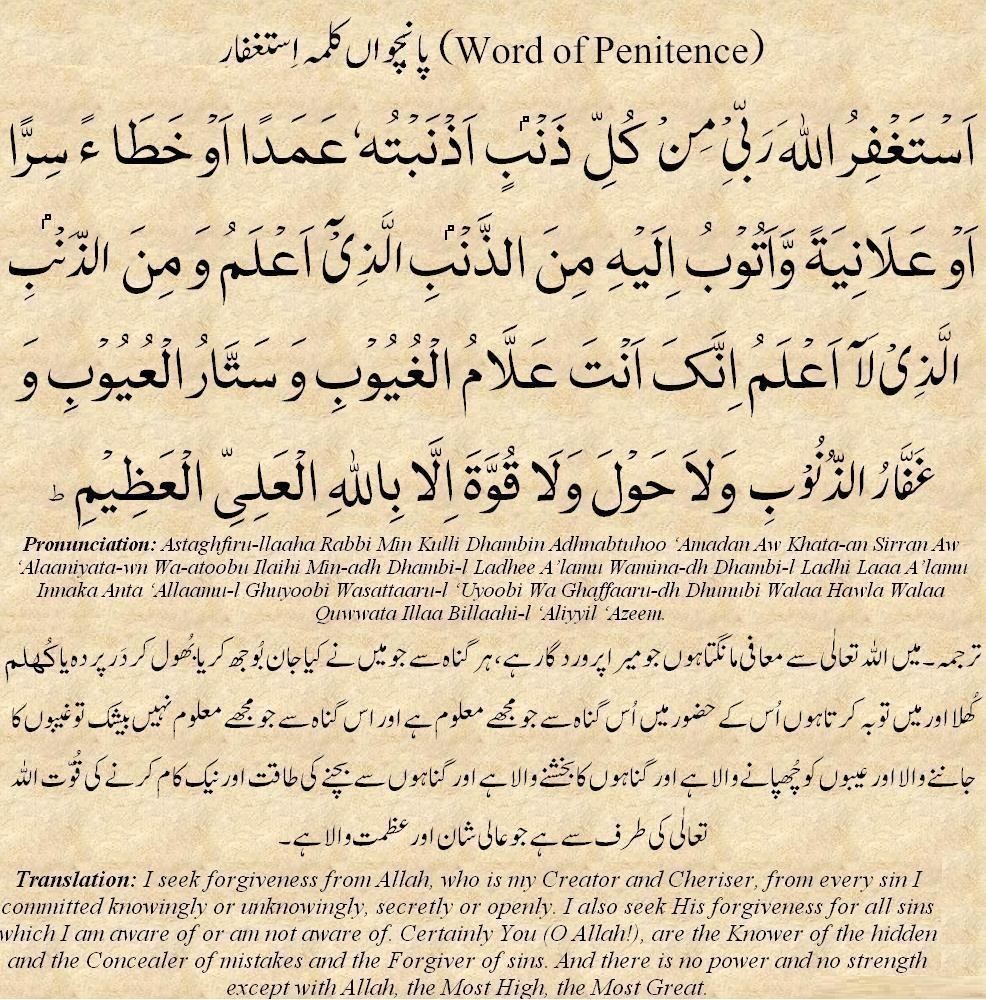 پانچواں کلمہ اِستغفار (Word of Penitence)
اَسْتَغْفِرُ اللهَ رَبِّیْ مِنْ کُلِّ ذَنْۢبٍ اَذْنَبْتُہٗ عَمَدًا اَوْ خَطَاءً سِرًّا
اَوْ عَلَانِیَةً وَّاَتُوْبُ اِلَیْہِ مِنَ الذَّنْۢبِ الَّذِیْٓ اَعْلَمُ وَ مِنَ الذَّنْۢبِ
الَّذِیْ لَآ اَعْلَمُ اِنَّکَ اَنْتَ عَلَّامُ الْغُیُوْبِ وَ سَتَّارُ الْعُیُوْبِ وَ
غَفَّارُ الذُّنُوْبِ وَلاَ حَوْلَ وَلَا قُوَّةَ اِلَّا بِاللهِ الْعَلِیِّ الْعَظِیْمِ ط
Pronunciation: Astaghfiru-llaaha Rabbi Min Kulli Dhambin Adhnabtuhoo ‘Amadan Aw Khata-an Sirran Aw
‘Alaaniyata-wn Wa-atoobu Ilaihi Min-adh Dhambi-l Ladhee A’lamu Wamina-dh Dhambi-l Ladhi Laaa A’lamu
Innaka Anta ‘Allaamu-l Ghuyoobi Wasattaaru-l ‘Uyoobi Wa Ghaffaaru-dh Dhunubi Walaa Hawla Walaa
Quwwata Illaa Billaahi-l ‘Aliyyil ‘Azeem.
ترجمہ۔ میں اللہ تعالٰی سے معافی مانگتا ہوں جو میرا پروردگار ہے، ہر گناہ سے جو میں نے کیا جان بُوجھ کر یا بُھول کر دَر پردہ یا کُھلم
کُھلا اور میں توبہ کرتا ہوں اُس کے حضور میں اُس گناہ سے جو مجھے معلوم ہے اور اس گناہ سے جو مجھے معلوم نہیں بیشک تو غیبوں کا
جاننے والا اور عیبوں کو چُھپانے والا ہے اور گناہوں کا بخشنے والا ہے اور گناہوں سے بچنے کی طاقت اور نیک کام کرنے کی قُوّت اللہ
تعالٰی کی طرف سے ہے جو عالی شان اور عظمت والا ہے۔
Translation: I seek forgiveness from Allah, who is my Creator and Cheriser, from every sin I
committed knowingly or unknowingly, secretly or openly. I also seek His forgiveness for all sins
which I am aware of or am not aware of. Certainly You (O Allah!), are the Knower of the hidden
and the Concealer of mistakes and the Forgiver of sins. And there is no power and no strength
except with Allah, the Most High, the Most Great.